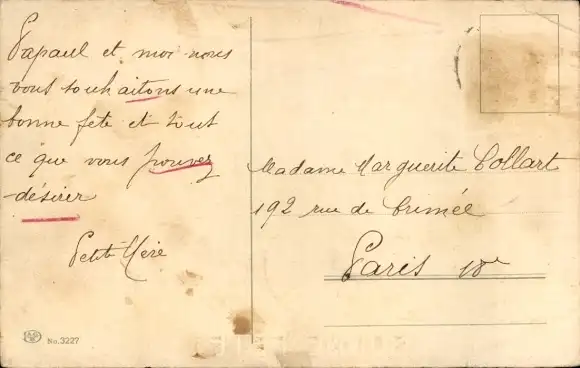 Papaul et moi nous
vous souhaitons une
bonne fete et tout
ce que vous pouvez
désirer
Petite Mère
Madame Marguerite Collart
192 rue de Crimée
Paris
No. 3227